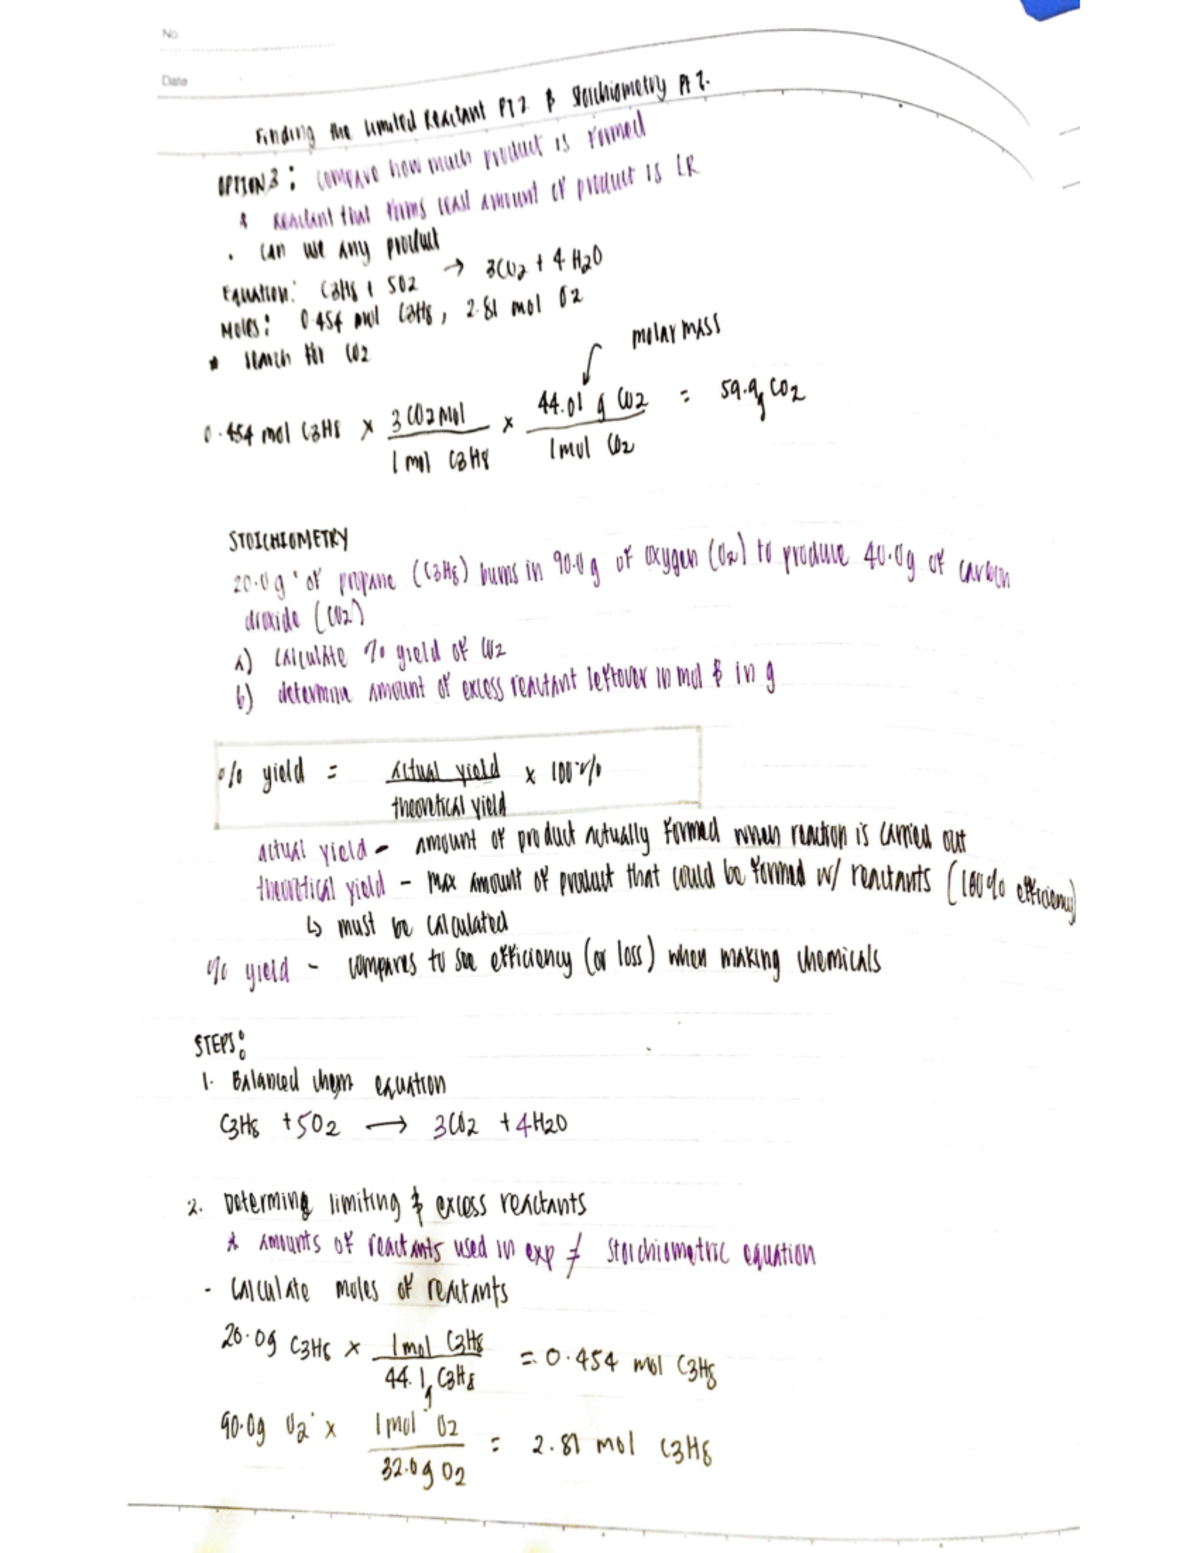 No.
Date
Finding the limited Reactant Pt 2 & Stoichiometry Pt 2.
OPTION 3: compare how much product is formed
* reactant that forms least amount of product is LR
· can use any product
Equation: C3H8 + 5O2 → 3CO2 + 4H2O
Moles: 0.454 mol C3H8, 2.81 mol O2
* search for CO2
molar mass
0.454 mol C3H8 × 3 CO2 mol / 1 mol C3H8 × 44.01 g CO2 / 1 mol CO2 = 59.9g CO2
STOICHIOMETRY
20.0g of propane (C3H8) burns in 90.0g of oxygen (O2) to produce 40.0g of carbon
dioxide (CO2)
a) calculate % yield of CO2
b) determine amount of excess reactant leftover in mol & in g
% yield = actual yield / theoretical yield × 100%
actual yield - amount of product actually formed when reaction is carried out
theoretical yield - max amount of product that could be formed w/ reactants (100% efficiency)
↳ must be calculated
% yield - compares to see efficiency (or loss) when making chemicals
STEPS:
1. Balanced chem equation
C3H8 + 5O2 → 3CO2 + 4H2O
2. Determing limiting & excess reactants
* amounts of reactants used in exp ≠ stoichiometric equation
- calculate moles of reactants
20.0g C3H8 × 1 mol C3H8 / 44.1g C3H8 = 0.454 mol C3H8
90.0g O2 × 1 mol O2 / 32.0g O2 = 2.81 mol C3H8